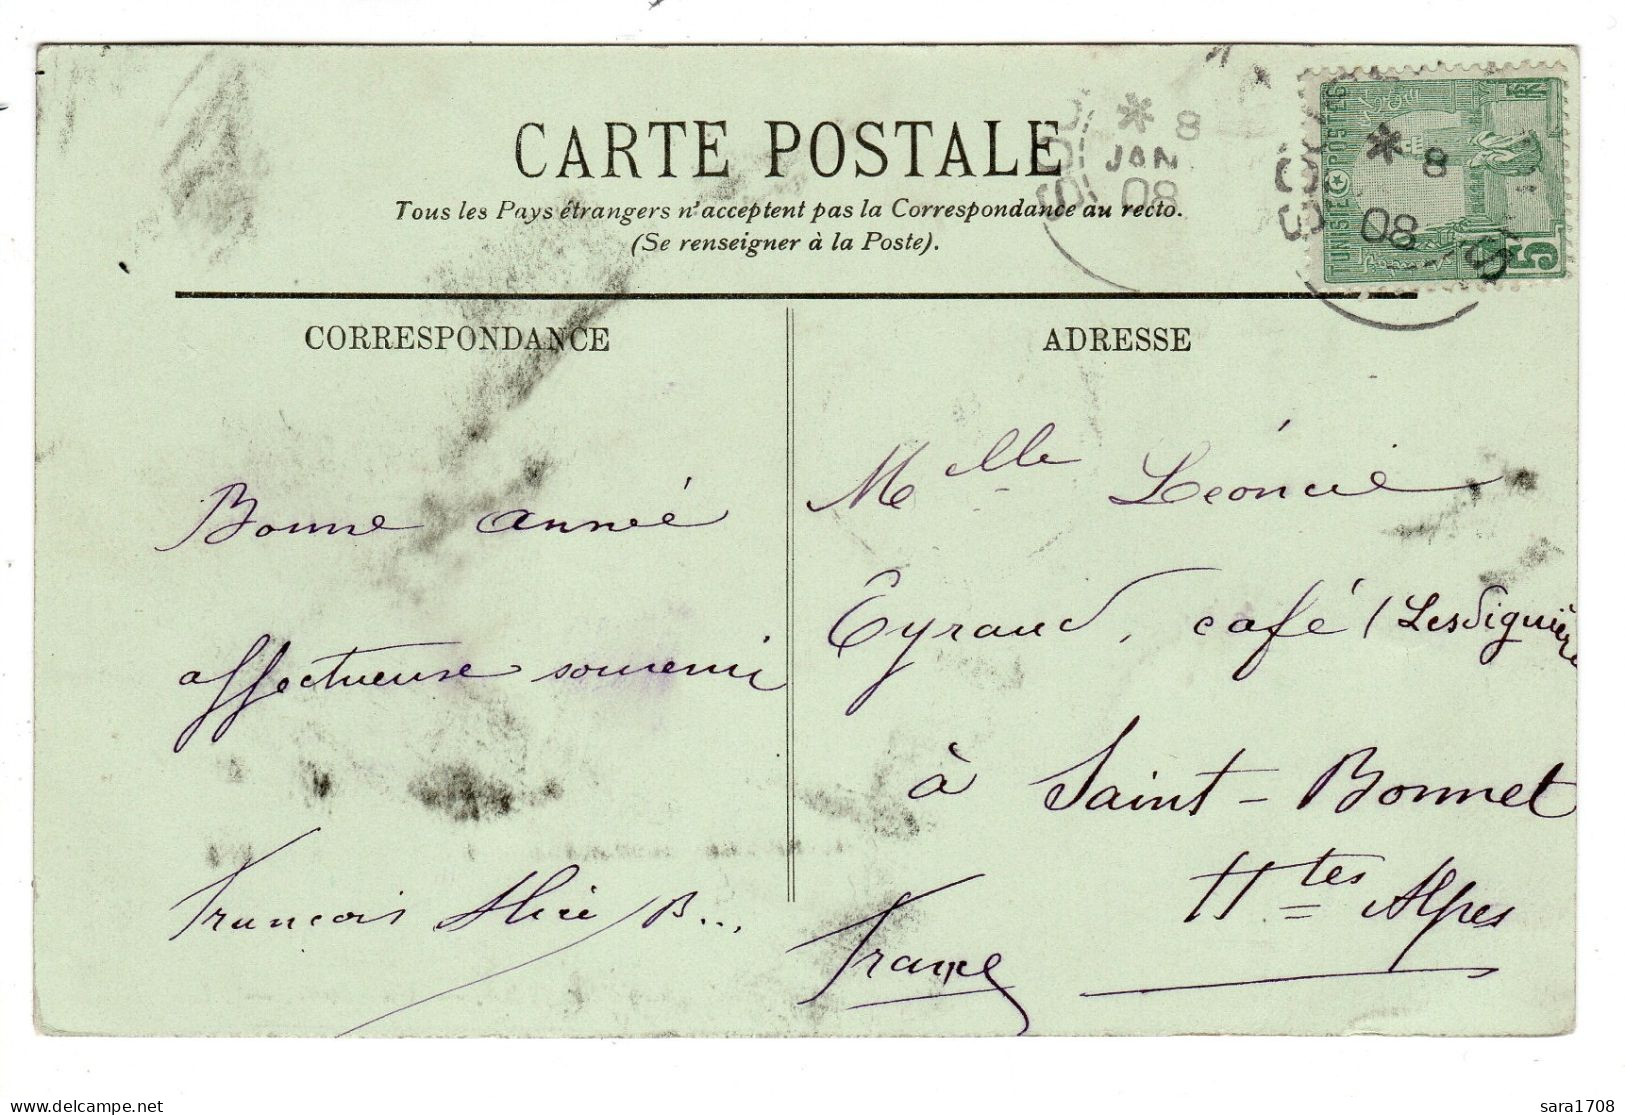 CARTE POSTALE
Tous les Pays étrangers n'acceptent pas la Correspondance au recto.
(Se renseigner à la Poste).
8
JAN
08
8
08
TUNISIE POSTES
5
CORRESPONDANCE
ADRESSE
Bonne année
affectueuse souvenir
François B...
Mlle Léoncie
Eyraud, café (Lesdiguières
à Saint-Bonnet
Htes Alpes
France
delcampe.net
sara1708